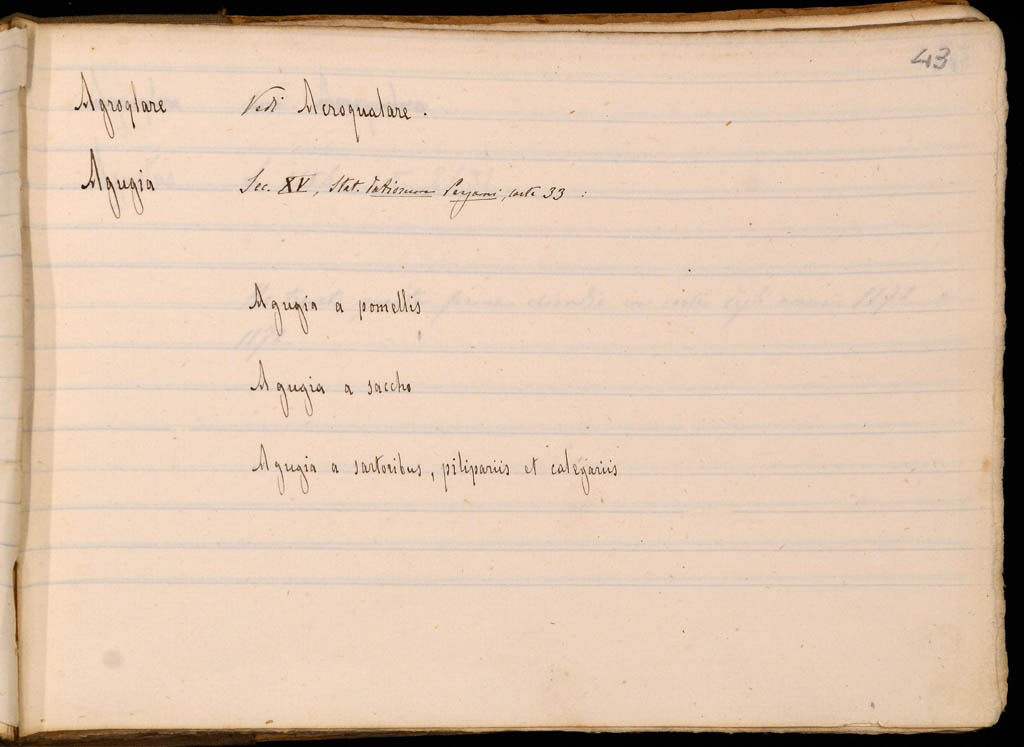 43
Agroqlare Vedi Acroqualare.
Agugia Sec. XV, Stat. Datiorum Pergami, carte 33 :
Agugia a pomellis
Agugia a saccho
Agugia a sartoribus, pilipariis et calegariis